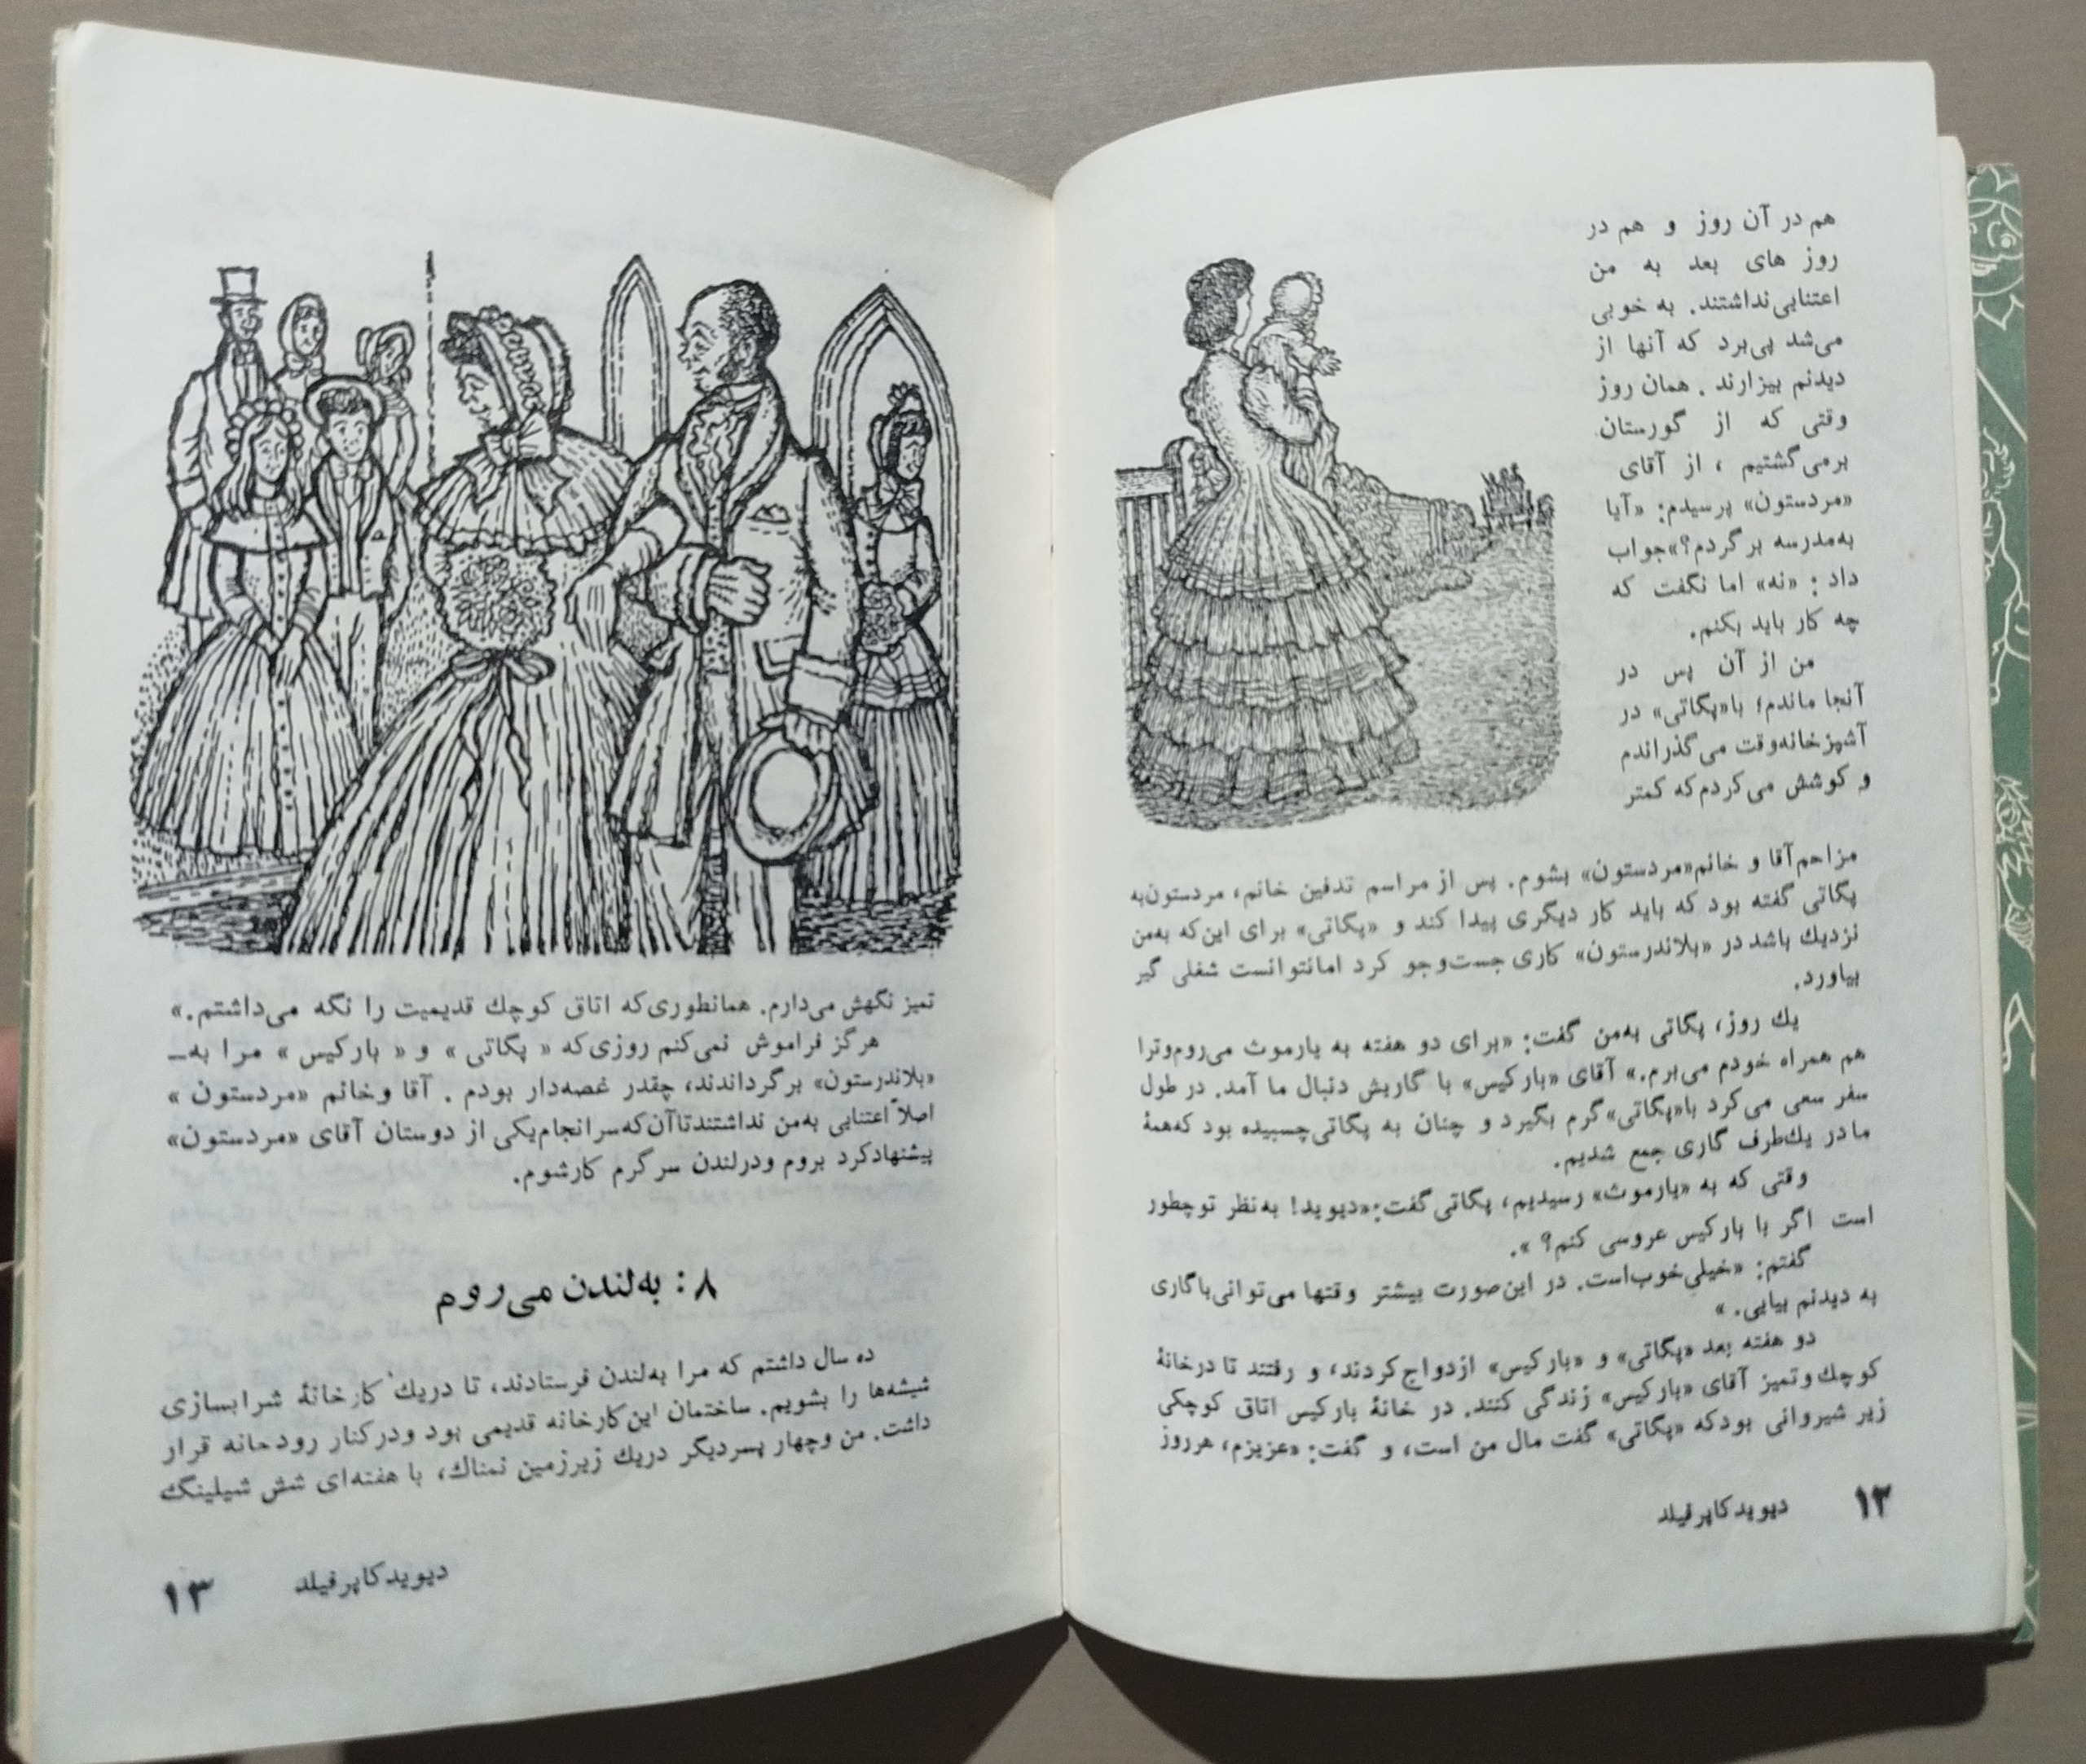 هم در آن روز و هم در
روز های بعد به من
اعتنایی‌نداشتند. به خوبی
می‌شد پی‌برد که آنها از
دیدنم بیزارند. همان روز
وقتی که از گورستان
برمی‌گشتیم، از آقای
«مردستون» پرسیدم: «آیا
به‌مدرسه برگردم؟»جواب
داد: «نه» اما نگفت که
چه کار باید بکنم.
من از آن پس در
آنجا ماندم؛ با«پگاتی» در
آشپزخانه‌وقت می‌گذراندم
و کوشش می‌کردم‌که کمتر
مزاحم‌آقا و خانم«مردستون» بشوم. پس از مراسم تدفین خانم، مردستون‌به
پگاتی گفته بود که باید کار دیگری پیدا کند و «پگاتی» برای این‌که به‌من
نزدیك باشد در «بلاندرستون» کاری جست‌وجو کرد امانتوانست شغلی گیر
بیاورد.
یك روز، پگاتی به‌من گفت: «برای دو هفته به یارموث می‌روم‌وترا
هم همراه خودم می‌برم.» آقای «بارکیس» با گاریش دنبال ما آمد. در طول
سفر سعی می‌کرد با«پگاتی»گرم بگیرد و چنان به پگاتی‌چسبیده بود که‌همهٔ
مادر یك‌طرف گاری جمع شدیم.
وقتی که به «یارموث» رسیدیم، پگاتی‌گفت:«دیوید! به‌نظر توچطور
است اگر با بارکیس عروسی کنم؟ ».
گفتم: «خیلی‌خوب‌است. در این‌صورت بیشتر وقتها می‌توانی‌باگاری
به دیدنم بیایی. »
دو هفته بعد «پگاتی» و «بارکیس» ازدواج‌کردند، و رفتند تا درخانهٔ
کوچك‌وتمیز آقای «بارکیس» زندگی کنند. در خانهٔ بارکیس اتاق کوچکی
زیر شیروانی بودکه «پگاتی» گفت مال من است، و گفت: «عزیزم، هرروز
۱۲ دیوید‌کاپرفیلد
تمیز نگهش می‌دارم. همانطوری‌که اتاق کوچك قدیمیت را نگه می‌داشتم.»
هرگز فراموش نمی‌کنم روزی‌که « پگاتی » و « بارکیس » مرا به‌ـ
«بلاندرستون» برگرداندند، چقدر غصه‌دار بودم . آقا وخانم «مردستون »
اصلاً اعتنایی به‌من نداشتندتاآن‌که‌سرانجام‌یکی از دوستان آقای «مردستون»
پیشنهادکرد بروم ودرلندن سرگرم کارشوم.
۸: به‌لندن می‌روم
ده سال داشتم که مرا به‌لندن فرستادند، تا دریك کارخانهٔ شرابسازی
شیشه‌ها را بشویم. ساختمان این‌کارخانه قدیمی بود ودرکنار رودخانه قرار
داشت. من وچهار پسردیگر دریك زیرزمین نمناك، با هفته‌ای شش شیلینگ
دیوید‌کاپرفیلد ۱۳